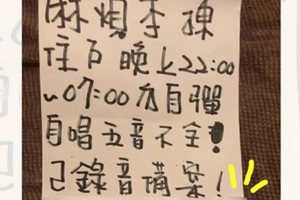 麻煩棟
住戶晚上22:00
~07:00勿自彈
自唱五音不全!
已錄音備案!